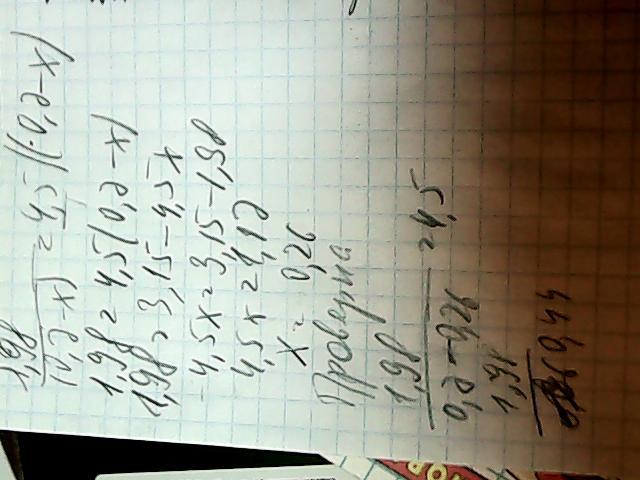 1,98
(0,7-x) = 4,5 |(·0,7-x)
1,98 = 4,5(0,7-x)
1,98 = 3,15-4,5x
-4,5x = 3,15-1,98
4,5x = 1,17
x = 0,26
Проверка
1,98
0,7-0,26 = 4,5
1,98
0,44